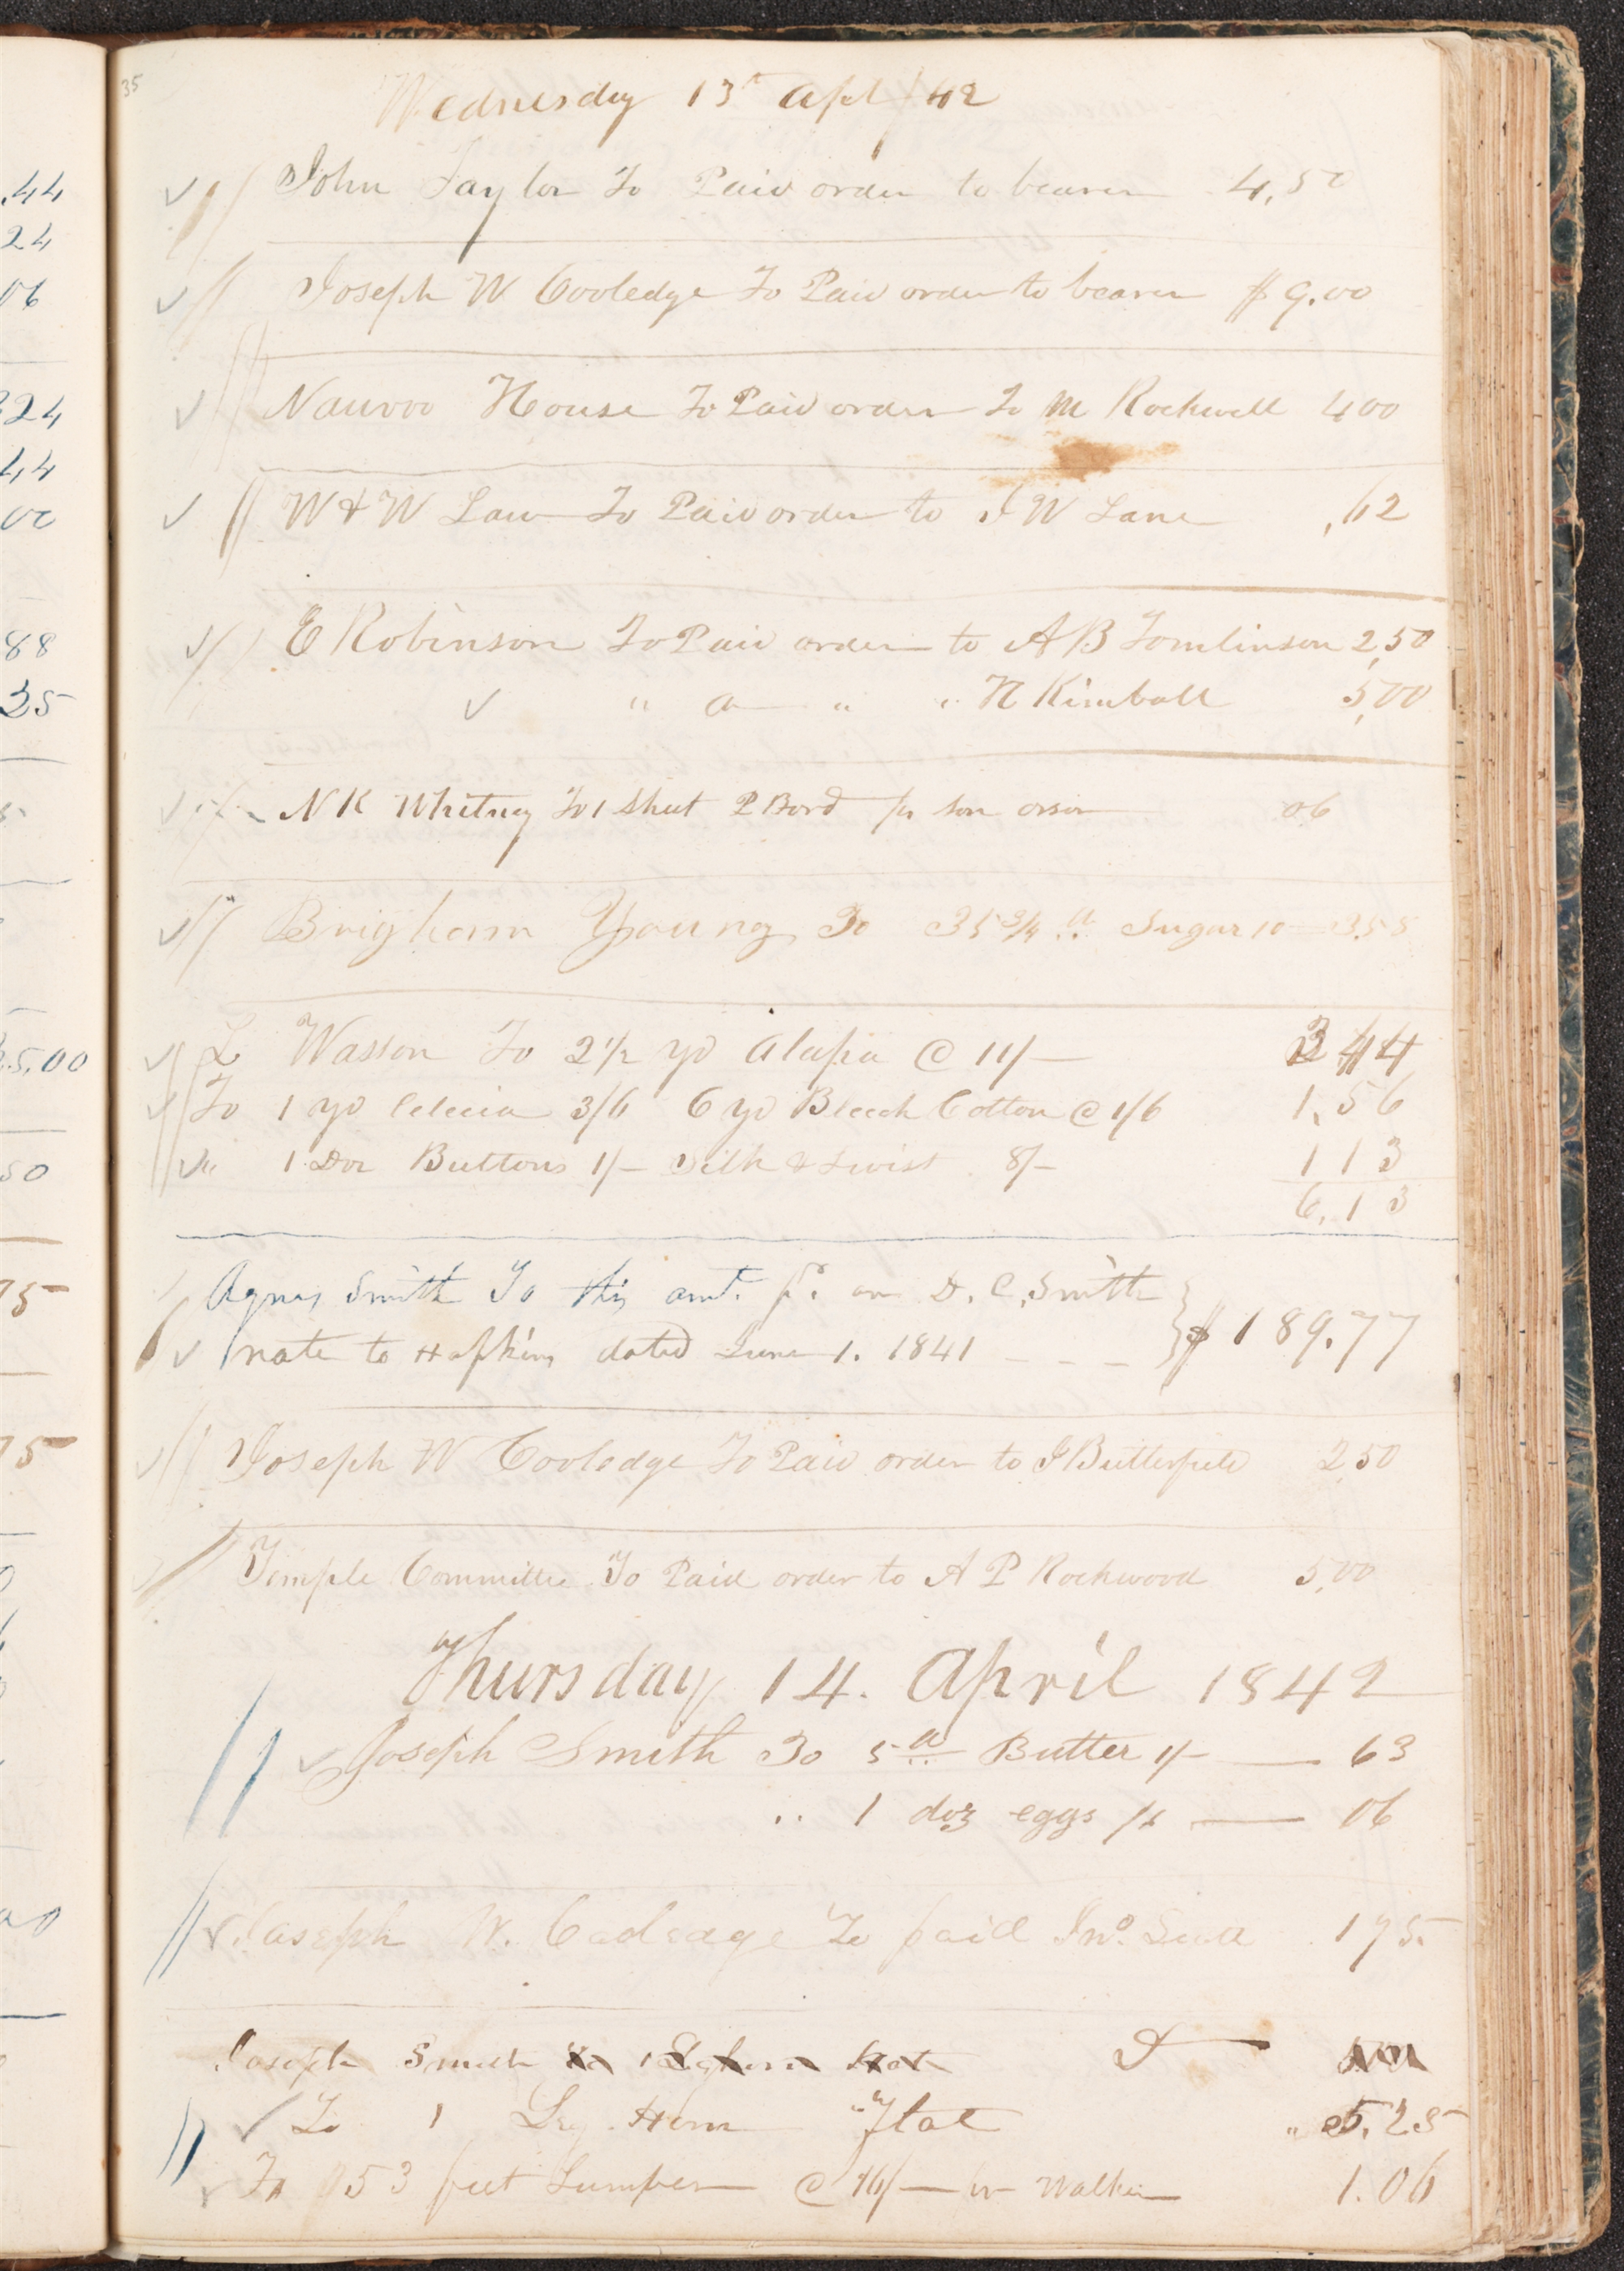 35
Wednesday 13th Apl /42
John Taylor To Paid order to bearer 4,50
Joseph W Cooledge To Paid order to bearer $9.00
Nauvoo House To Paid order to M Rockwell 400
W & W Law To Paid order to J W Lane ,62
E Robinson To Paid order to A B Tomlinson 2,50
" " " H Kimball 5,00
N K Whitney To 1 Sheet P Bord pr son orson 06
Brigham Young To 35 3/4 lb Sugar 10 3.58
L Wasson To 2 1/2 yd Alapia @ 11/— 3 44
To 1 yd Celecia 3/6 6 yd Bleech Cotton @ 1/6 1,56
" 1 Doz Buttons 1/— Silk & Twist 8/— 1 13
6,13
Agnes Smith To this amt. pd. on D. C. Smith
note to Hopkins dated June 1. 1841 - - - $189.77
Joseph W Cooledge To Paid order to J Butterfield 2,50
Temple Committee To Paid order to A P Rockwood 5,00
Thursday 14. April 1842
Joseph Smith To 5 lb Butter 1/— 63
.. 1 doz eggs 06
Joseph W. Coolidge To paid Jno. Scott 175
Joseph Smith To 1 Leghorn Hat
To 1 Leg. Horn Flat " 5.25
To 53 feet Lumber @ 16/— pr Walker 1.06
.44
24
06
324
44
00
88
25
5.00
50
75
75